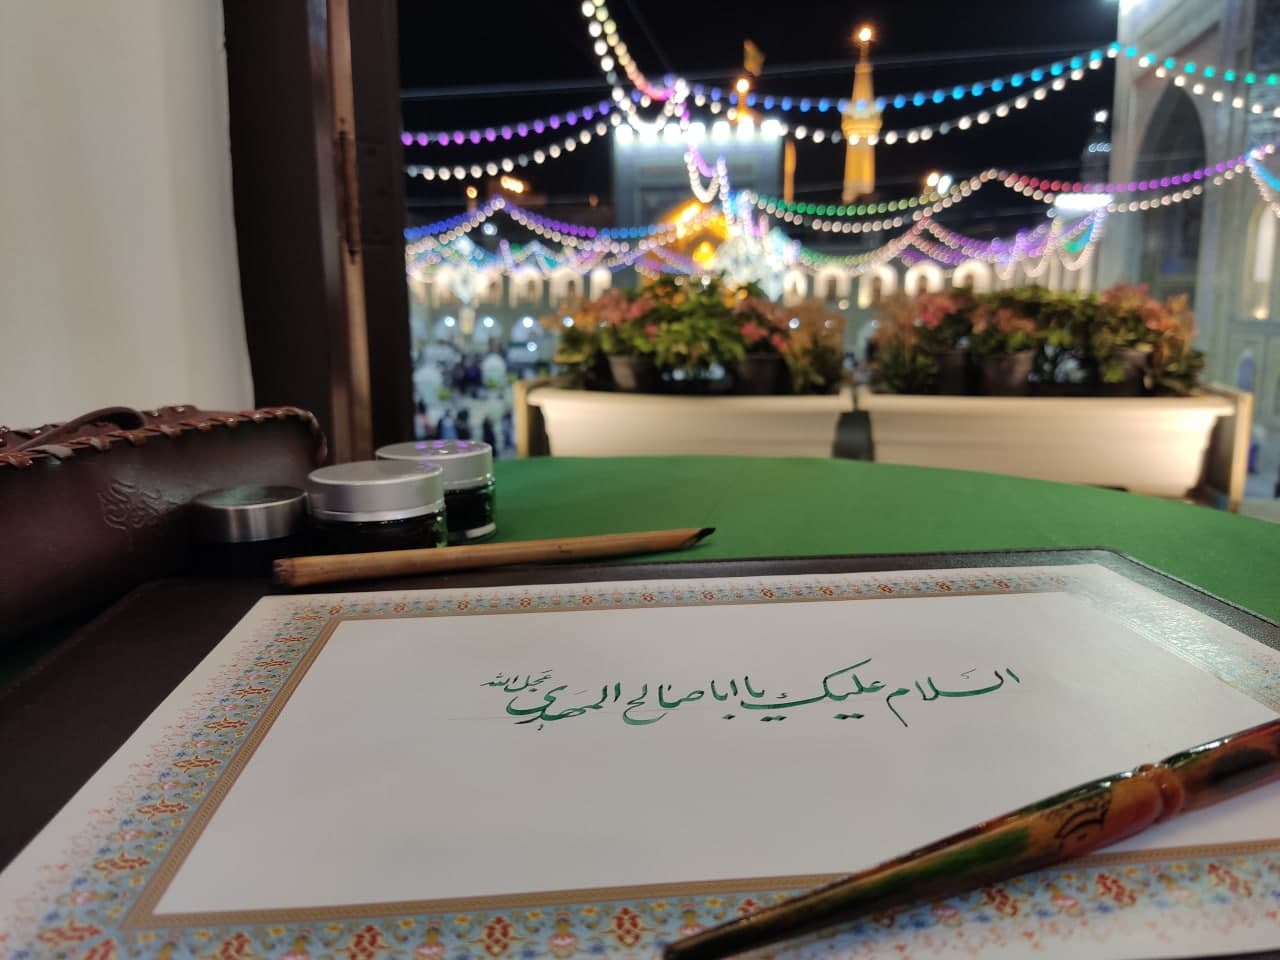 السَّلام عليك يا ابا صالح المهدي عجل الله